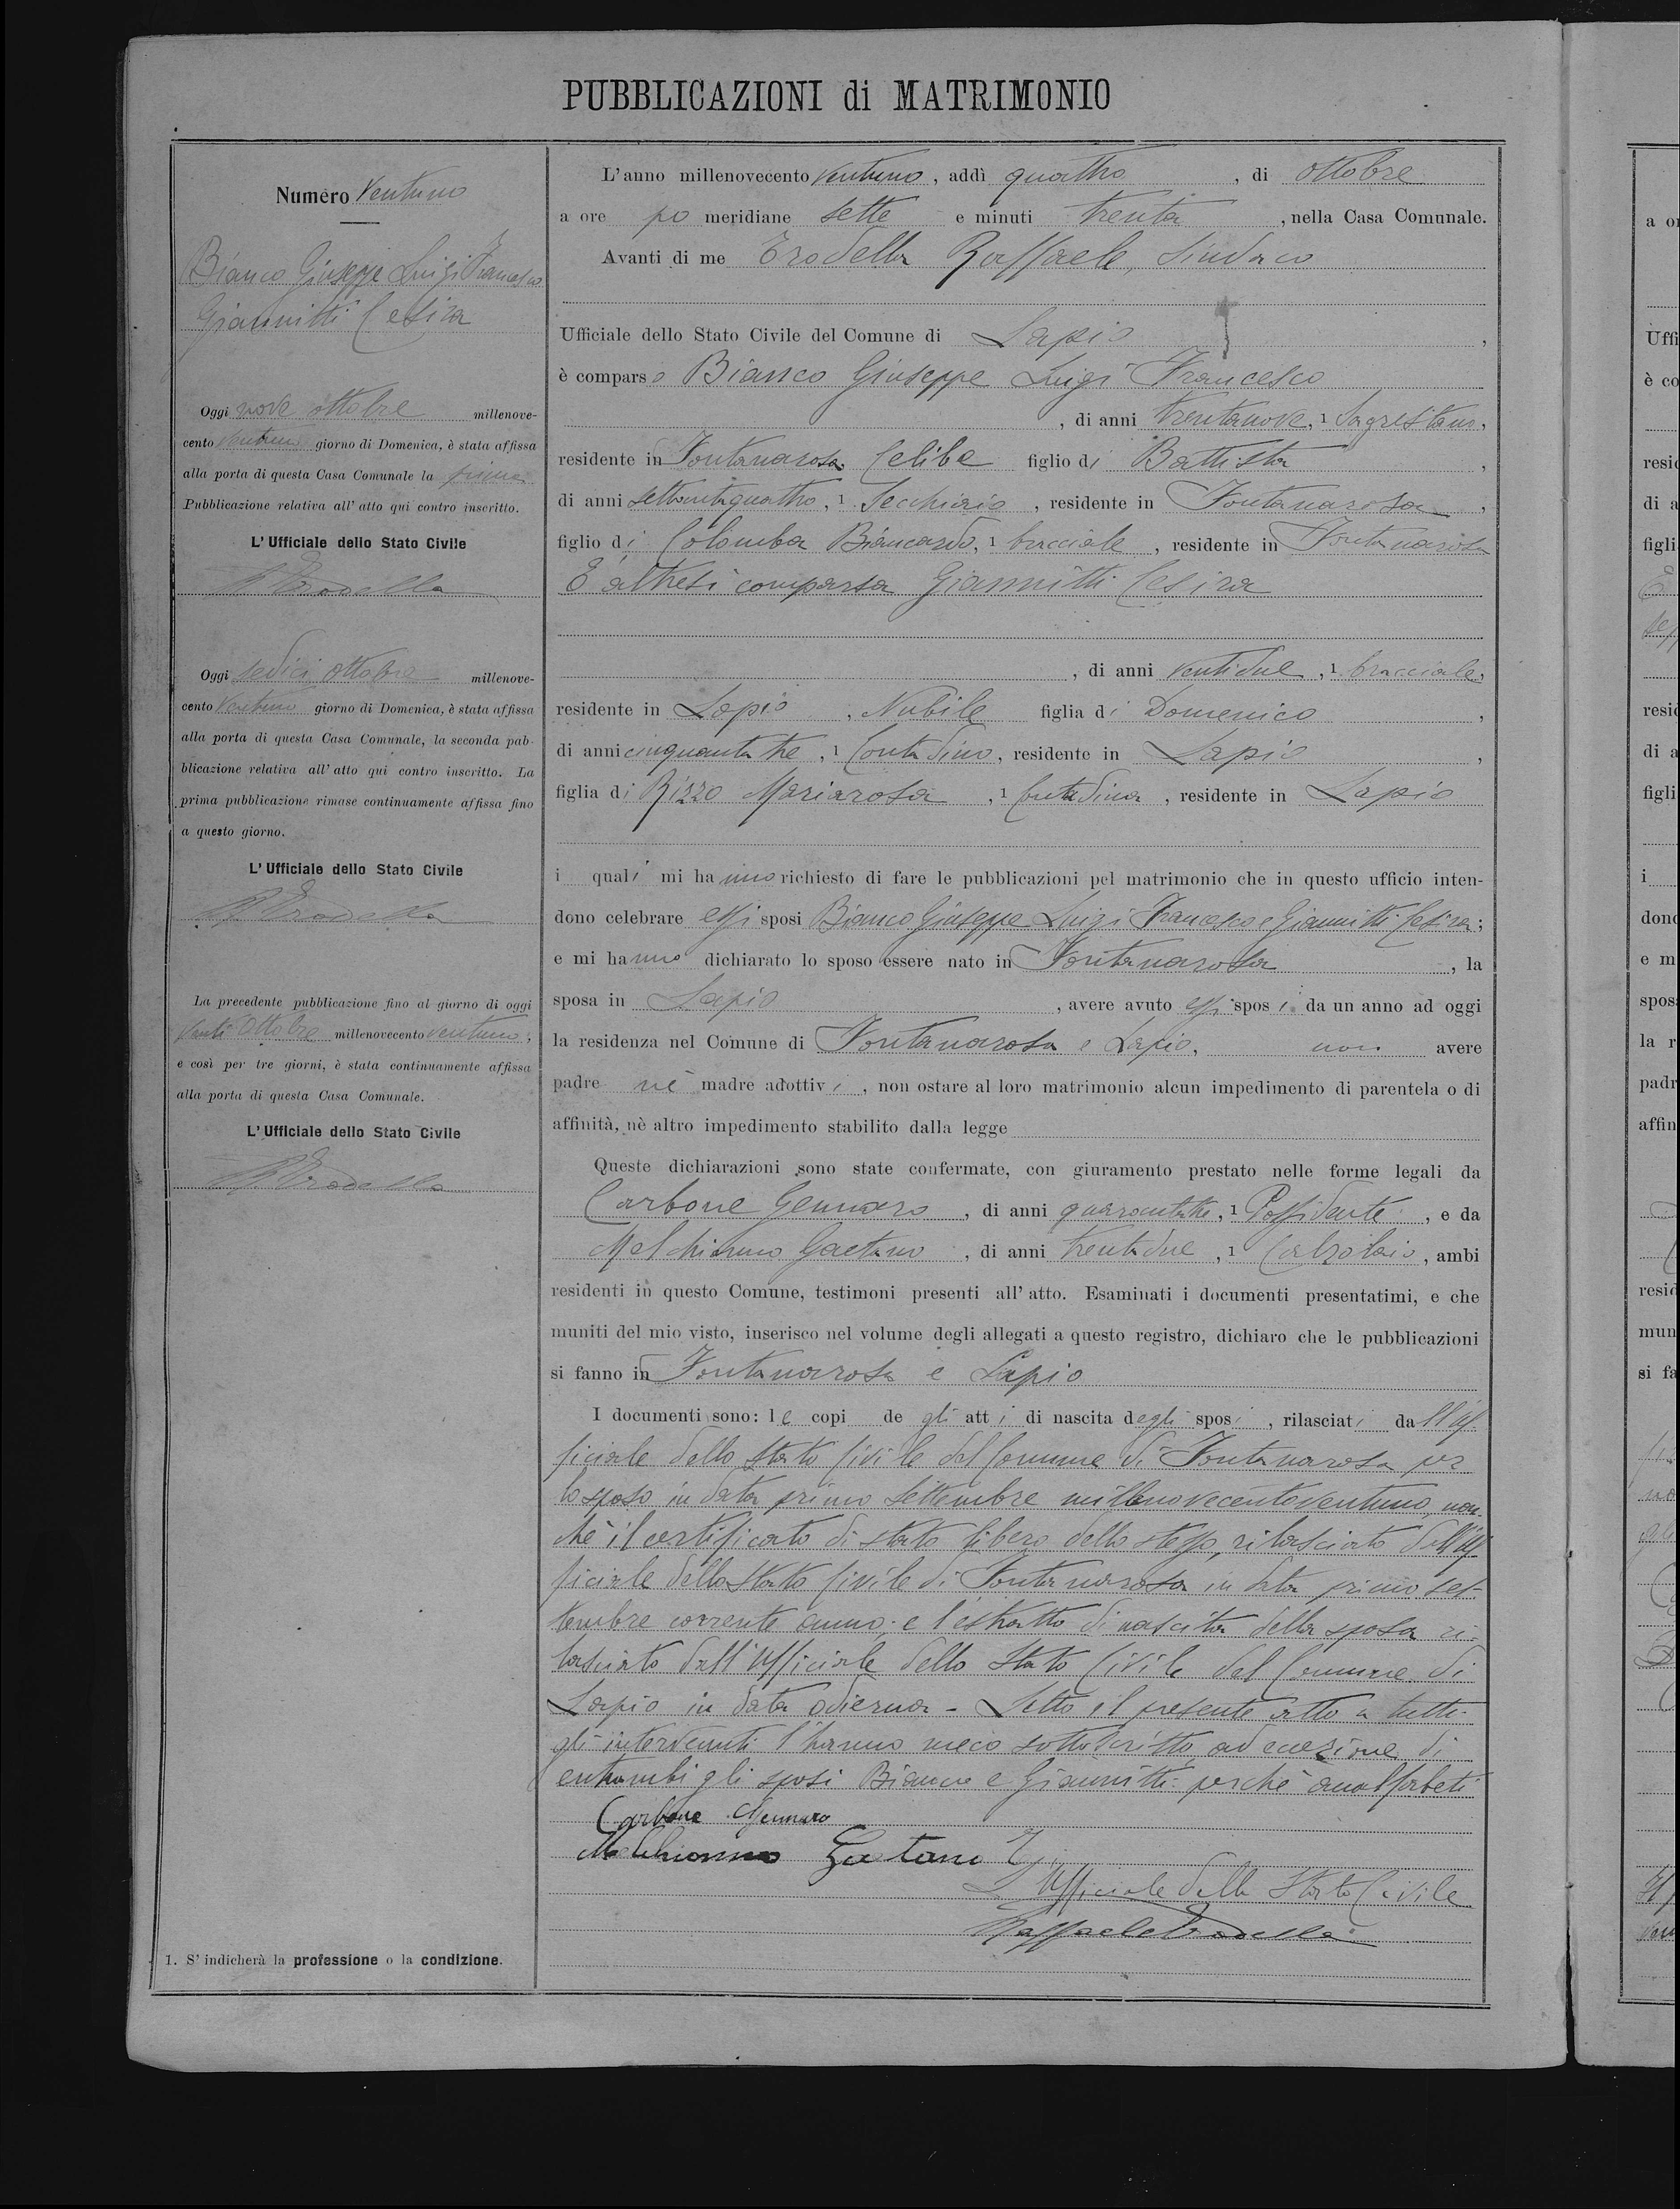 PUBBLICAZIONI di MATRIMONIO
Numero Ventuno
Bianco Giuseppe Luigi Francesco
Giannitti Cesira
Oggi nove ottobre millenove-
cento ventuno giorno di Domenica, è stata affissa
alla porta di questa Casa Comunale la prima
Pubblicazione relativa all' atto qui contro inscritto.
L' Ufficiale dello Stato Civile
R Erodella
Oggi sedici ottobre millenove-
cento ventuno giorno di Domenica, è stata affissa
alla porta di questa Casa Comunale, la seconda pub-
blicazione relativa all' atto qui contro inscritto. La
prima pubblicazione rimase continuamente affissa fino
a questo giorno.
L' Ufficiale dello Stato Civile
R Erodella
La precedente pubblicazione fino al giorno di oggi
venti ottobre millenovecento ventuno,
e così per tre giorni, è stata continuamente affissa
alla porta di questa Casa Comunale.
L' Ufficiale dello Stato Civile
R Erodella
1. S' indicherà la professione o la condizione.
L'anno millenovecento ventuno, addì quattro, di ottobre
a ore po meridiane sette e minuti trenta, nella Casa Comunale.
Avanti di me Erodella Raffaele, Sindaco
Ufficiale dello Stato Civile del Comune di Lapio,
è comparso Bianco Giuseppe Luigi Francesco
, di anni trentanove, 1 Sagrestano,
residente in Fontanarosa Celibe figlio di Battista,
di anni settantaquattro, 1 Secchiaio, residente in Fontanarosa,
figlio di Colomba Biancardo, 1 bracciale, residente in Fontanarosa
E' altresì comparsa Giannitti Cesira
, di anni ventidue, 1 bracciale,
residente in Lapio, Nubile figlia di Domenico,
di anni cinquantatre, 1 Contadino, residente in Lapio,
figlia di Rizzo Mariarosa, 1 Contadina, residente in Lapio
i quali mi hanno richiesto di fare le pubblicazioni pel matrimonio che in questo ufficio inten-
dono celebrare essi sposi Bianco Giuseppe Luigi Francesco e Giannitti Cesira;
e mi hanno dichiarato lo sposo essere nato in Fontanarosa, la
sposa in Lapio, avere avuto essi sposi da un anno ad oggi
la residenza nel Comune di Fontanarosa e Lapio, non avere
padre nè madre adottivi, non ostare al loro matrimonio alcun impedimento di parentela o di
affinità, nè altro impedimento stabilito dalla legge
Queste dichiarazioni sono state confermate, con giuramento prestato nelle forme legali da
Carbone Gennaro, di anni quarantatre, 1 Possidente, e da
Melchionno Gaetano, di anni trentadue, 1 Calzolaio, ambi
residenti in questo Comune, testimoni presenti all' atto. Esaminati i documenti presentatimi, e che
muniti del mio visto, inserisco nel volume degli allegati a questo registro, dichiaro che le pubblicazioni
si fanno in Fontanarosa e Lapio
I documenti sono: le copi de gli atti di nascita degli sposi, rilasciati dall'Uf-
ficiale dello Stato Civile del Comune di Fontanarosa per
lo sposo in data primo Settembre millenovecentoventuno, non-
chè il certificato di stato libero dello stesso, rilasciato dall'Uf
ficiale dello Stato Civile di Fontanarosa in data primo set-
tembre corrente anno; e l'estratto di nascita della sposa ri-
lasciato dall'Ufficiale dello Stato Civile del Comune di
Lapio in data odierna - Letto il presente atto a tutti
gli intervenuti l'hanno meco sottoscritto ad eccezione di
entrambi gli sposi Bianco e Giannitti perchè analfabeti
Carbone Gennaro
Melchionno Gaetano
L'Ufficiale dello Stato Civile
Raffaele Erodella